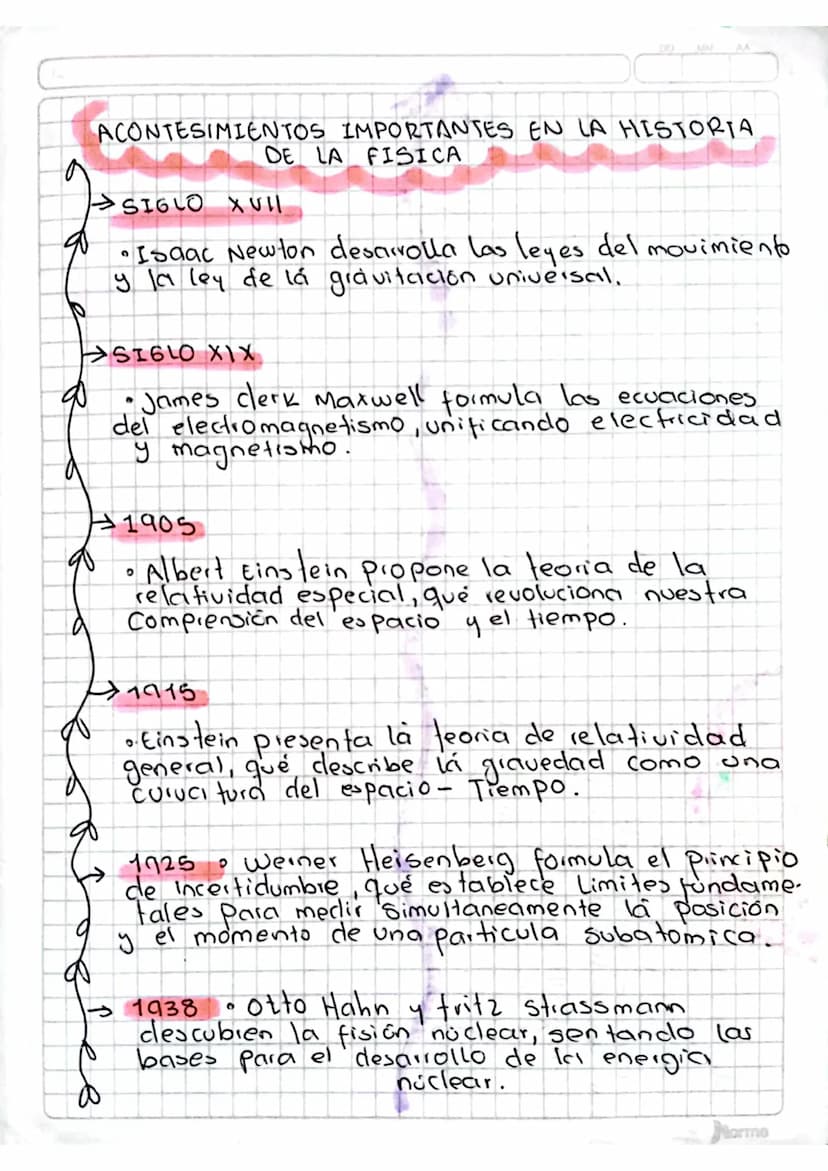 DD MM AA
ACONTESIMIENTOS IMPORTANTES EN LA HISTORIA
DE LA FISICA
→ SIGLO XVII
• Isaac Newton desarrolla las leyes del movimiento
y la ley de lá grávitación universal.
→ SIGLO XIX
• James clerk Maxwell formula las ecuaciones
del electromagnetismo, unificando electricidad
y magnetismo.
→ 1905
• Albert Einstein propone la teoria de la
relatividad especial, qué revoluciona nuestra
Comprensión del espacio y el tiempo.
→ 1915
• Einstein presenta là teoria de relatividad
general, qué describe lá gravedad como una
curvatura del espacio - Tiempo.
→ 1925 • Werner Heisenberg formula el principio
de incertidumbre, qué establece Limites fundame-
tales para medir simultaneamente lá posición
y el momento de una particula subatomica.
→ 1938 • Otto Hahn y fritz strassmann
descubren la fisión núclear, sentando las
bases para el desarrollo de la energia
núclear.
Norma